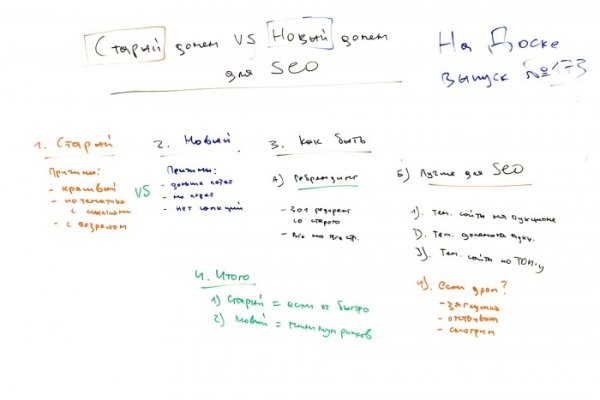 Старый домен VS Новый домен
для SEO
На Доске
выпуск №173
1. Старый
Причины:
- красивый
- по тематике
с ссылками
- с возрастом
VS
2. Новый
Причины:
- дольше
- не
- нет санкций
3. Как быть
А) Ребрендинг
- 301 редирект
со старого
- Все на все стр.
Б) Лучше для SEO
1). Тем. сайты на аукционе
2). Тем. домены
3). Тем. сайты по ТОП-у
4). если дроп?
- загрузка
- отстойник
- смотрим
4. Итого
1) Старый = если быстро
2) Новый = минимум рисков